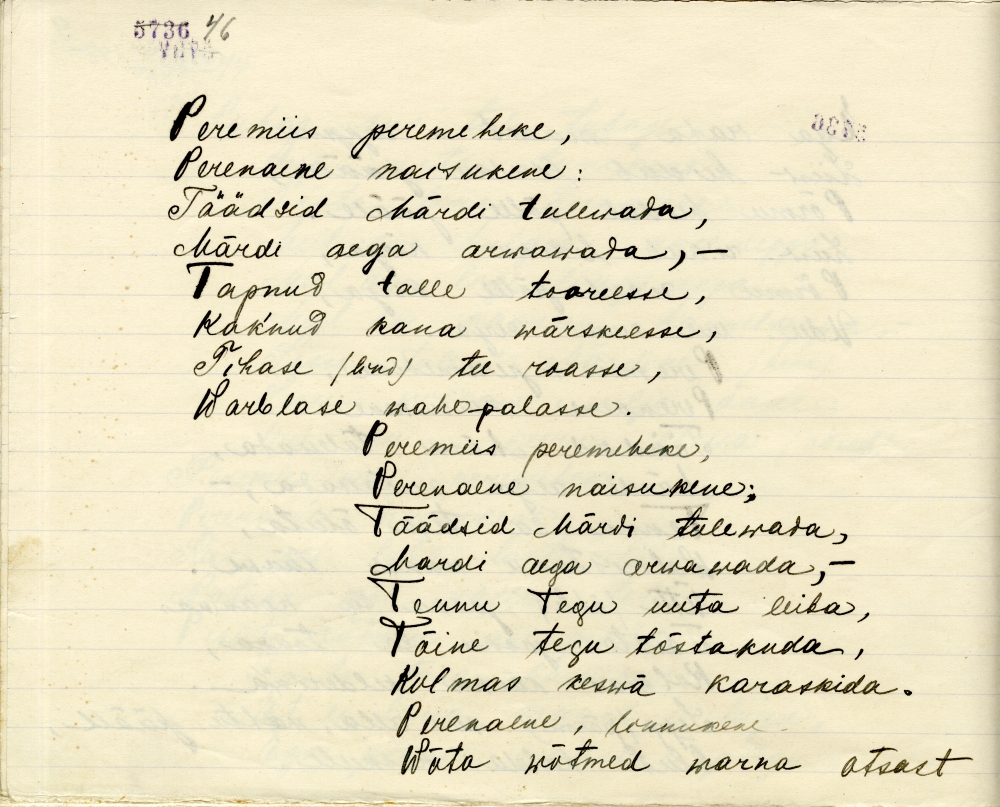 5736 46
Peremiis peremeheke,
Perenaene naisukene:
Täädsid Märdi tulewada,
Märdi aega arwawada, —
Tapnud talle tooreesse,
Kak'nud kana wärskeesse,
Tihase (lind) tee roasse,
Warblase wahe-palasse.
Peremiis peremeheke,
Perenaene naisukene;
Täädsid Märdi tulewada,
Mardi aega arwawada, —
Tennu tegu uuta leiba,
Tõine tegu tõstakuda,
Kolmas keswä karaskida.
Perenaene, linnukene
Wõta wõtmed warna otsast